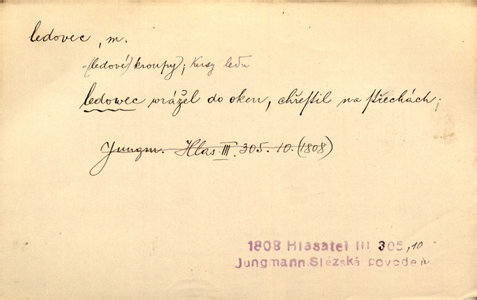 ledovec, m.
(ledové) kroupy; kusy ledu
ledowec wrážel do oken, chřestil na střechách;
Jungm. Hlas. III. 305. 10. (1808)
1808 Hlasatel III 305,10
Jungmann Slézská povodeň